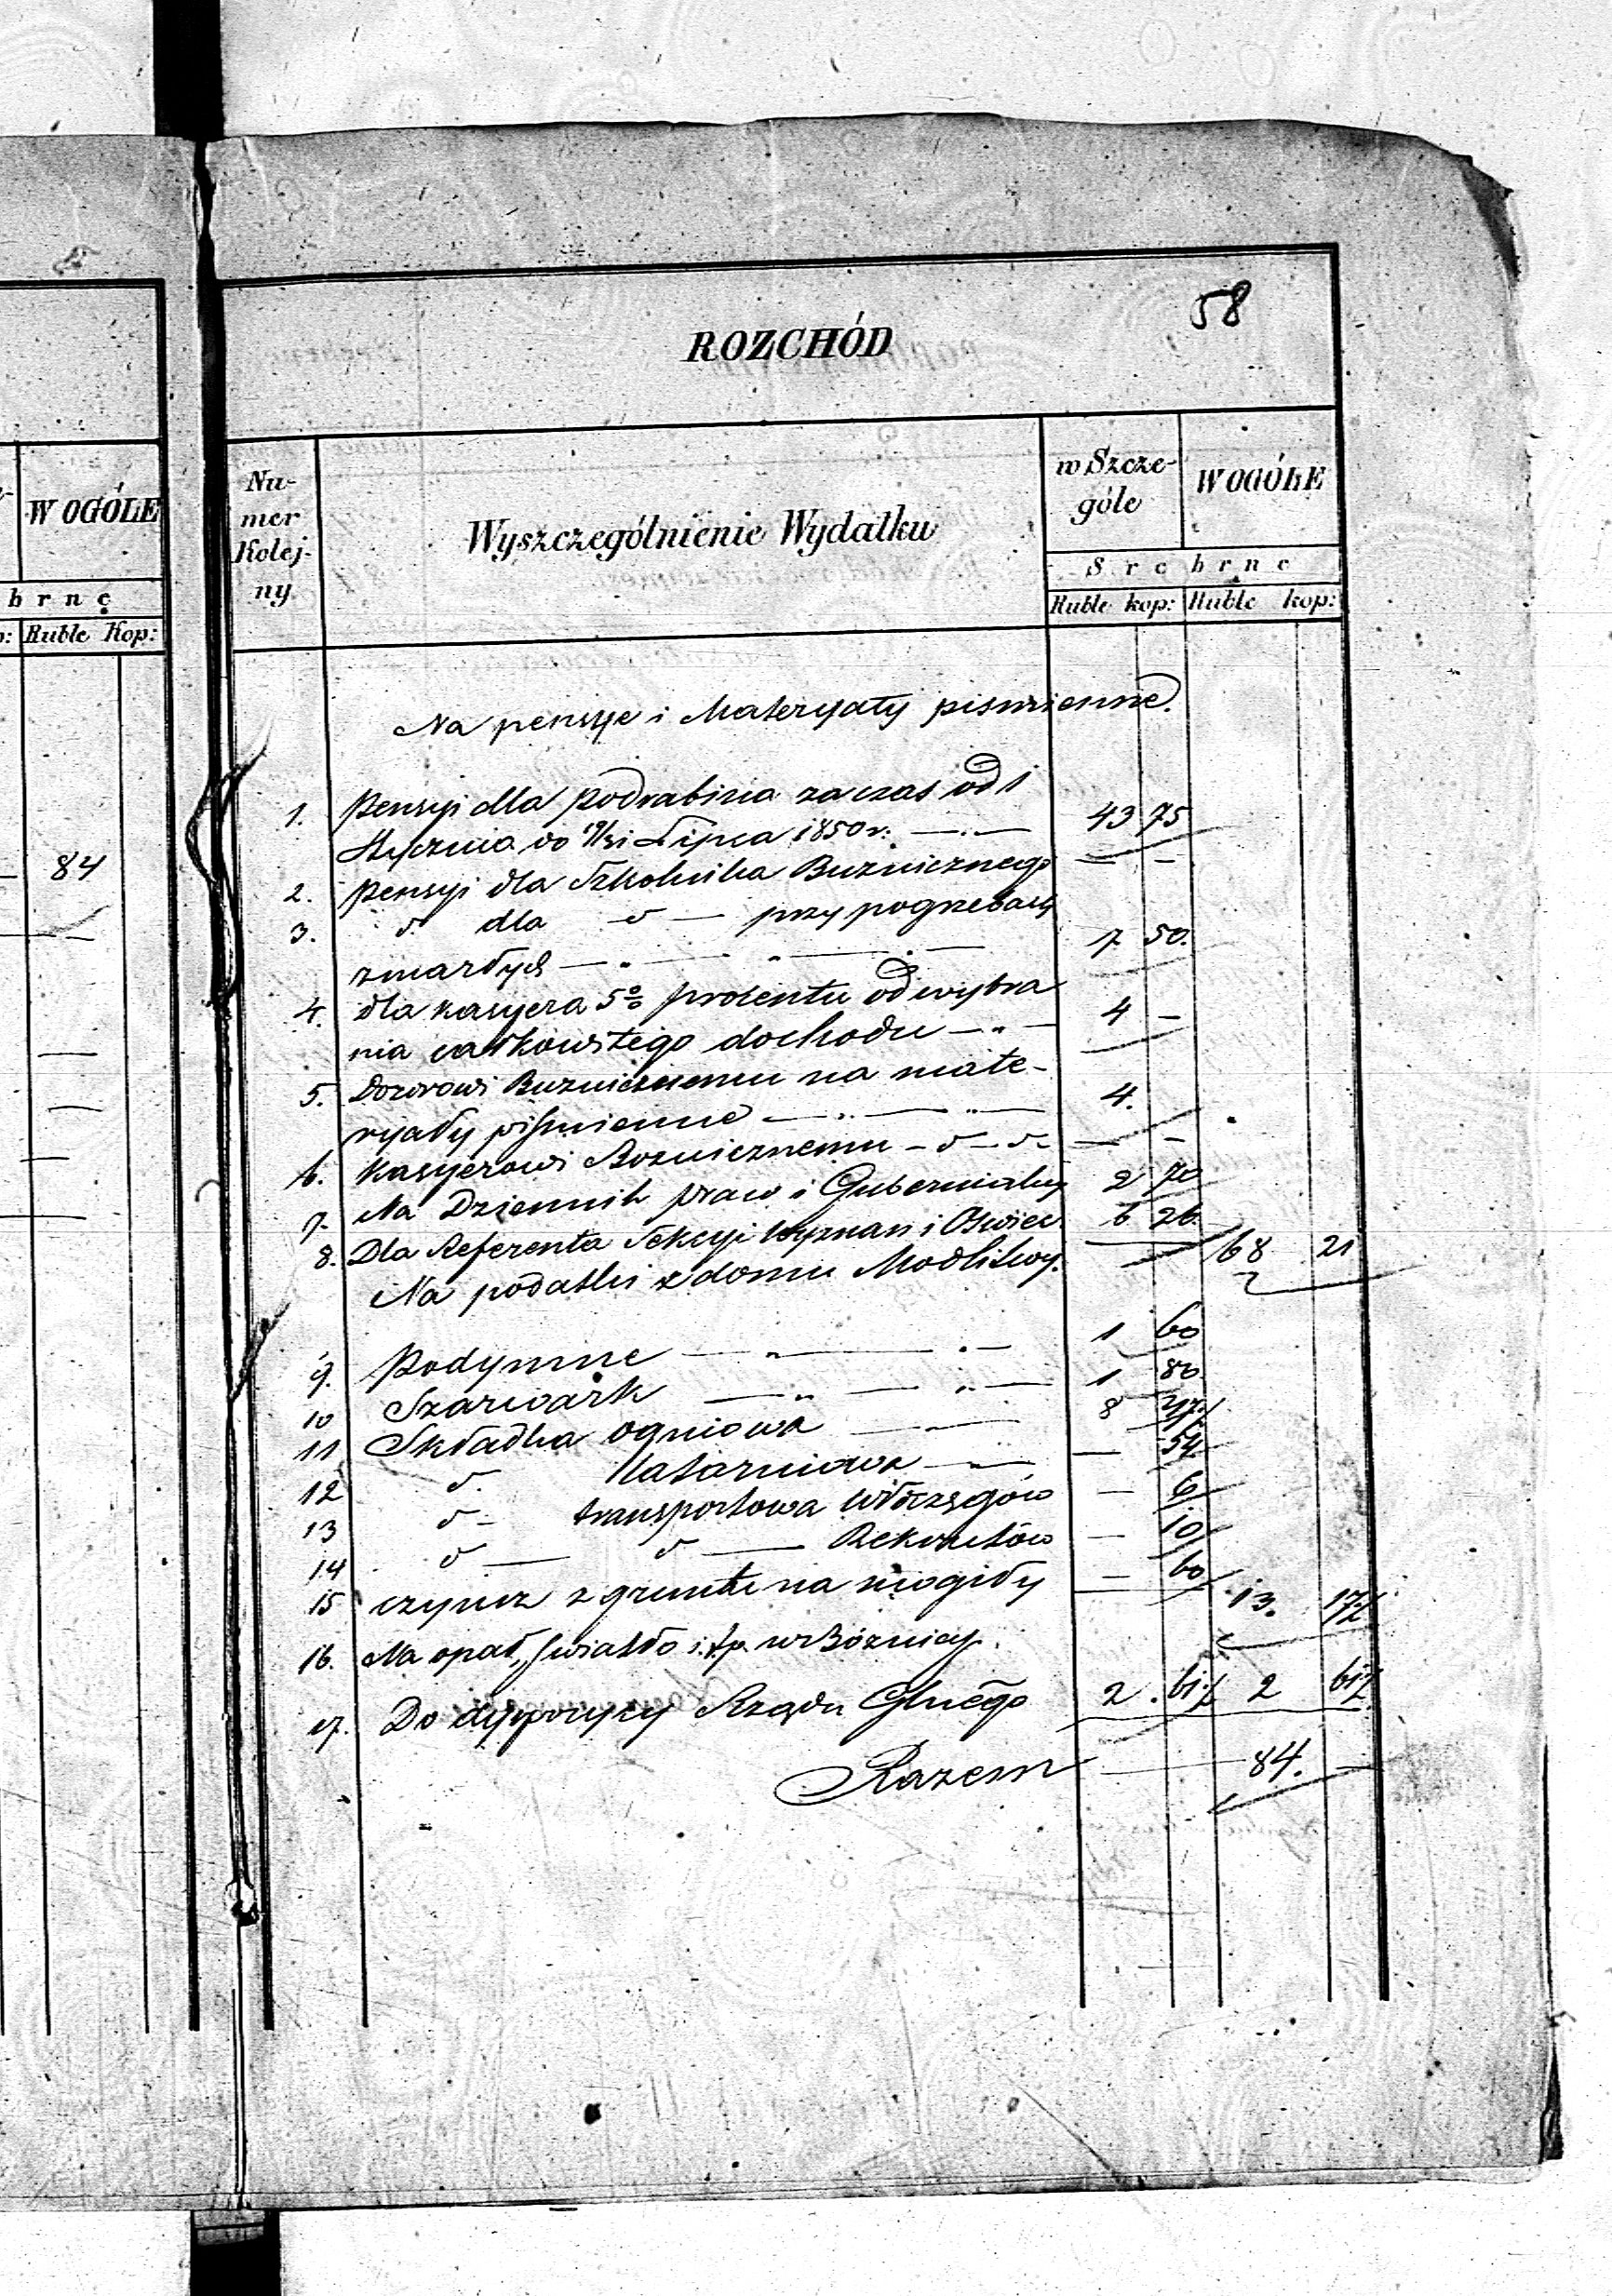 58
ROZCHÓD
W OGÓLE
brne
Ruble Kop:
84
Nu-
mer
Kolej-
ny
Wyszczególnienie Wydatku
w Szcze-
góle
W OGÓLE
Srebrne
Ruble kop: Ruble kop:
Na pensye i Materyały piśmienne.
1. Pensyi dla Podrabina za czas od 1
Stycznia do Lipca 1850 r. 43 75
2. Pensyi dla Szkolnika Buznicznego — —
3. " dla " — przy pogrzebach
zmarłych — 7 50.
4. dla kasyera 5% procentu od wybra
nia całkowitego dochodu — 4 —
5. Dozorowi Buznicznemu na mate-
ryały piśmienne — 4.
6. Kasyerowi Boznicznemu — — —
7. Na Dziennik praw i Gubernialny 2 70
8. Dla Referenta Sekcyi Wyznań i Oświec. 6 26.
Na podatki z domu Modlitwy. 68 21
9. Podymne — 1 60
10 Szarwark — 1 80
11 Składka ogniowa — 8 47½
12 " latarniowa — — 54
13 " transportowa włóczęgów — 6
14 " — " — Rekrutów — 10
15 czynsz z gruntu na mogiły — 60 13. 17½
16. Na opał, światło i.t.p. w Bóżnicy.
17. Do dyspozycyi Rządu Glnego 2 61½ 2 61½
Razem — 84. —